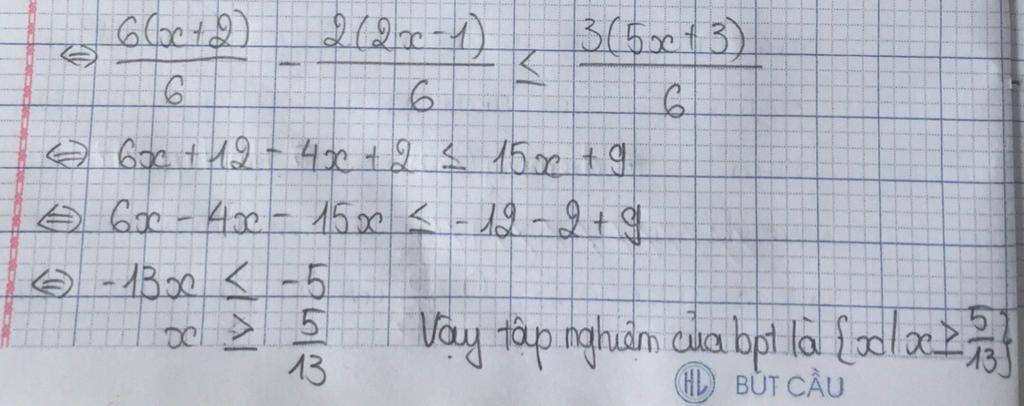 ⇔ 6(x+2)/6 - 2(2x-1)/6 ≤ 3(5x+3)/6
⇔ 6x+12-4x+2 ≤ 15x+9
⇔ 6x-4x-15x ≤ -12-2+9
⇔ -13x ≤ -5
x ≥ 5/13 Vậy tập nghiệm của bpt là {x/x≥5/13}
HL BÚT CẦU